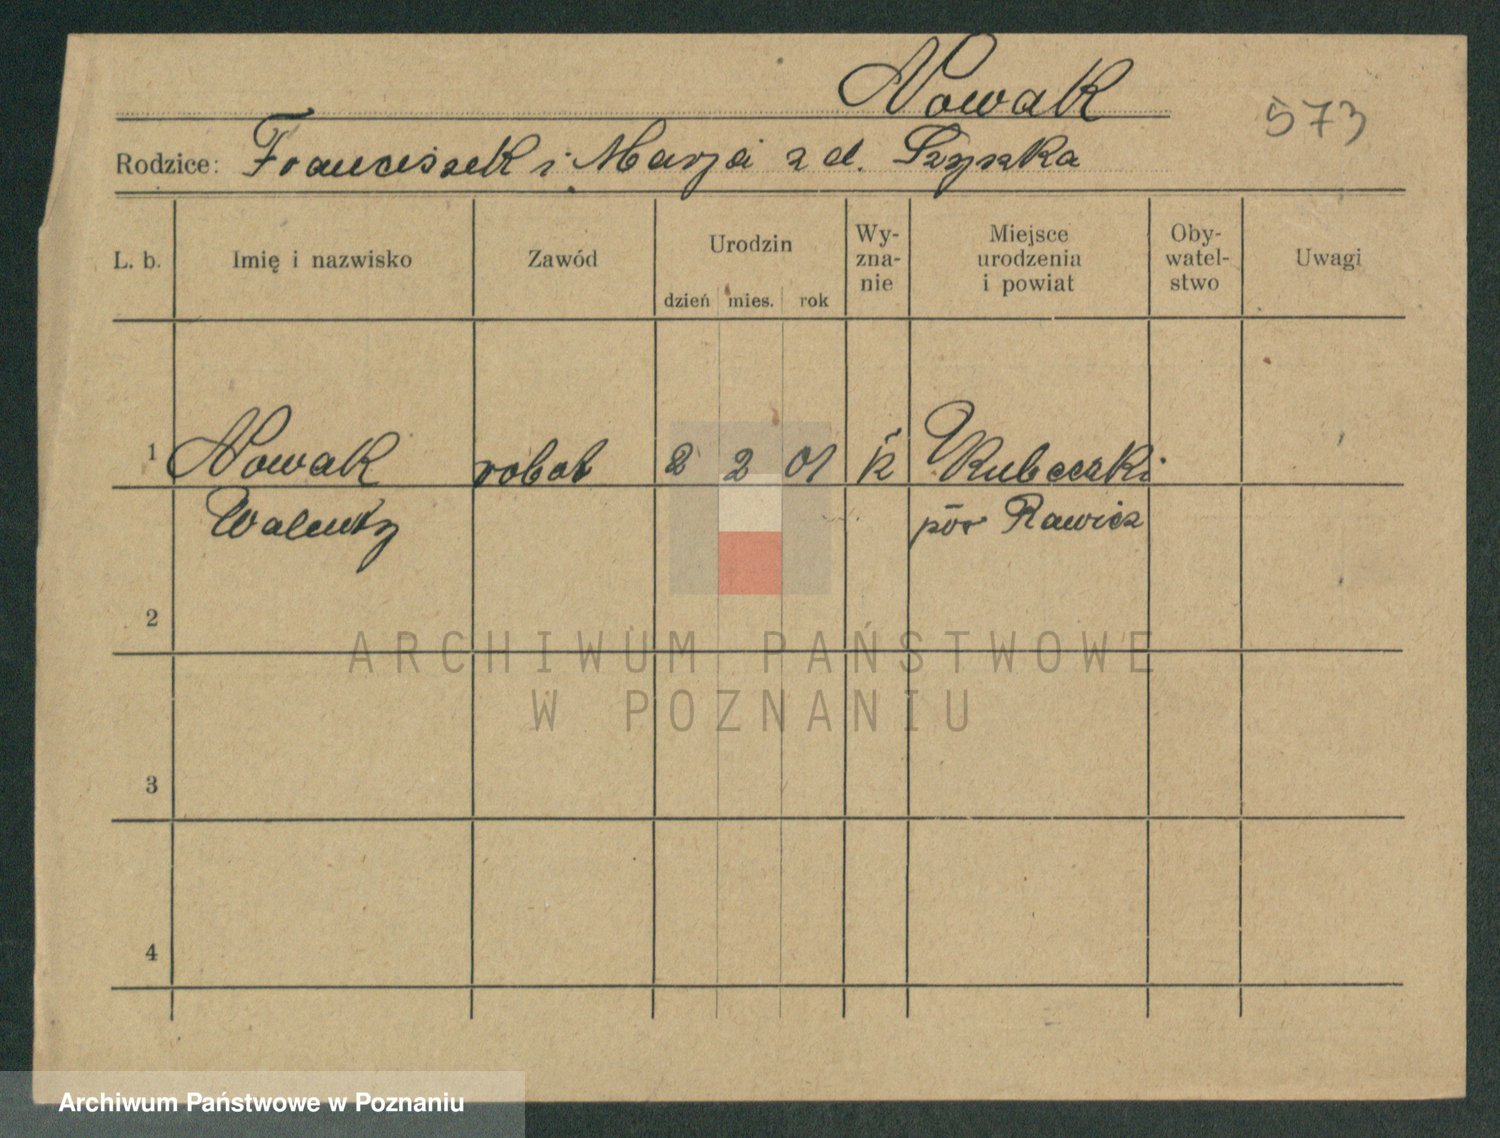 Nowak
573
Rodzice: Franciszek i Marja z d. Szyszka
L. b. Imię i nazwisko Zawód Urodzin dzień mies. rok Wy-zna-nie Miejsce urodzenia i powiat Oby-watel-stwo Uwagi
1 Nowak robot 2 2 01 k
Walenty pow Rawicz
2
ARCHIWUM PAŃSTWOWE
W POZNANIU
3
4
Archiwum Państwowe w Poznaniu